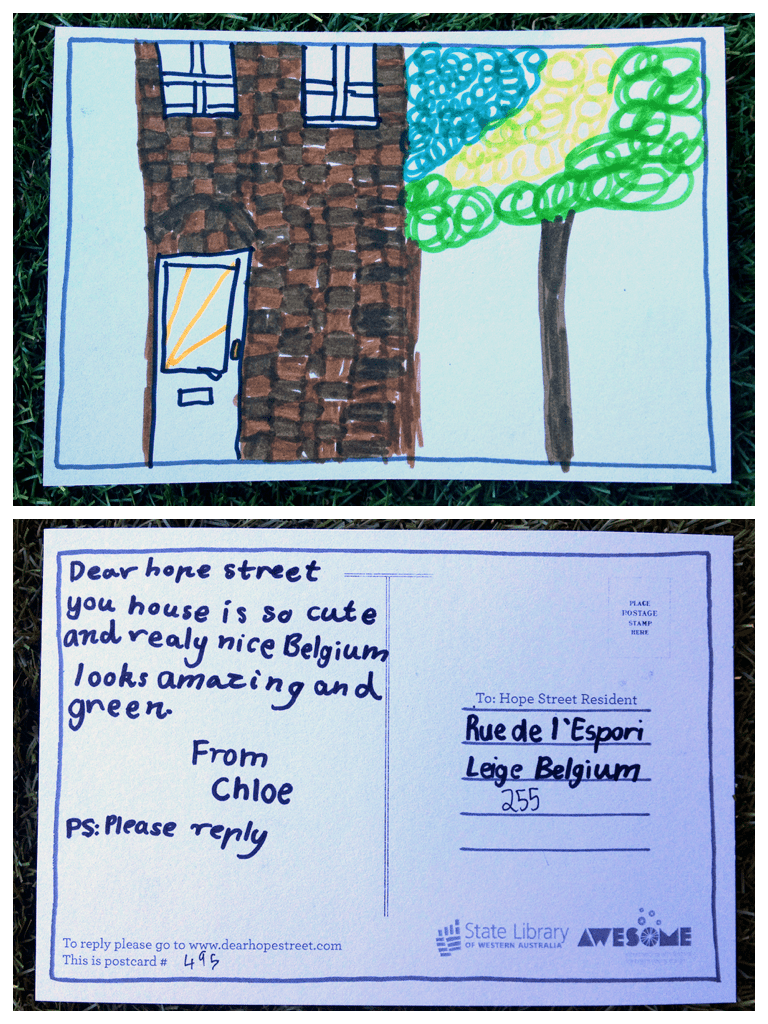 Dear hope street
you house is so cute
and realy nice Belgium
looks amazing and
green.
From
Chloe
PS: Please reply
To reply please go to www.dearhopestreet.com
This is postcard # 495
PLACE
POSTAGE
STAMP
HERE
To: Hope Street Resident
Rue de l'Espori
Leige Belgium
255
State Library
OF WESTERN AUSTRALIA
AWESOME